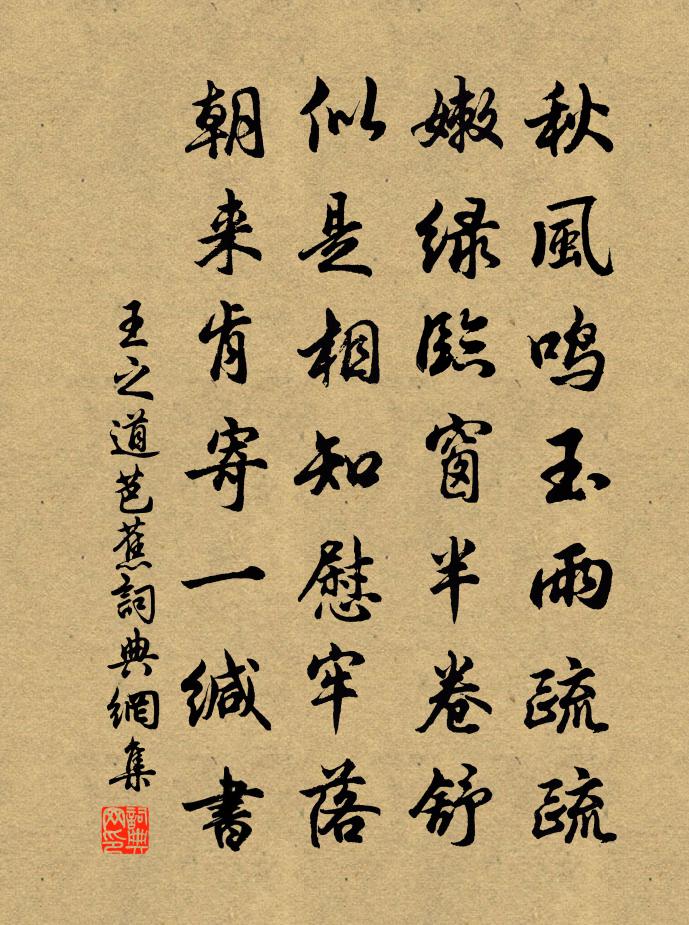 秋風鸣玉雨疏疏
嫩绿臨窗半卷舒
似是相知慰牢落
朝来肯寄一缄書
王之道芭蕉詞典網集
詞典网印